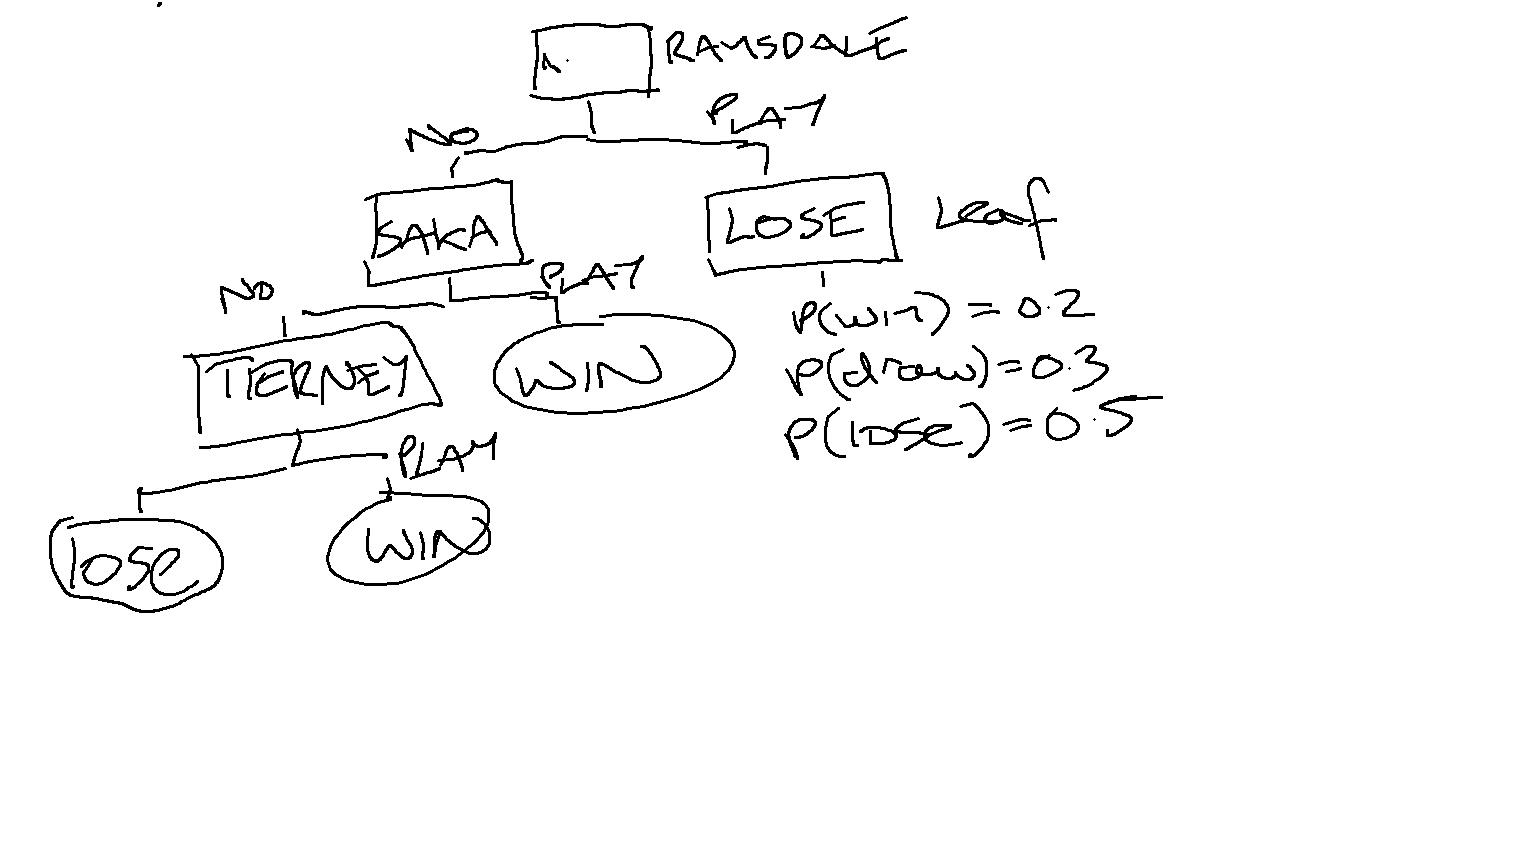 RAMSDALE
NO
PLAY
SAKA
LOSE
Leaf
NO
PLAY
P(win) = 0.2
TIERNEY
WIN
P(draw) = 0.3
P(lose) = 0.5
PLAY
lose
WIN